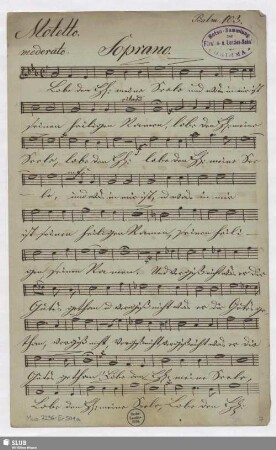 Motetto. Psalm. 103.
moderato. Soprano.
Lobe den Hꝛ: meine Seele und was in mir ist
seinen heiligen Namen, lobe den Hꝛ: meine
Seele, lobe den Hꝛ: lobe den Hꝛ: meine See
le, und was in mir ist, und was in mir
ist seinen heiligen Namen, seinen heili
gen seinen Namen. Und vergiß nicht was er dir
Gutes gethan, und vergiß nicht was er dir Gutes ge
than, vergiß nicht, vergiß nicht was er dir
Gutes gethan. Lobe den Hꝛ: meine Seele,
Lobe den Hꝛ: meine Seele, Lobe den Hꝛ:
SLUB
Wir führen Wissen.